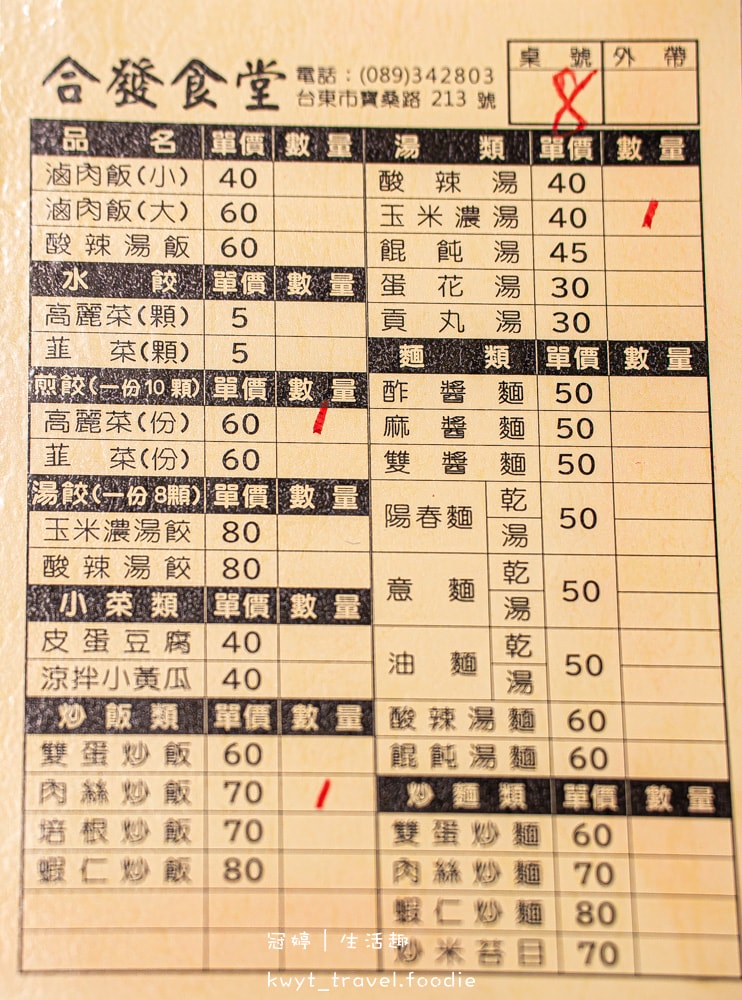 合發食堂
電話：(089)342803
台東市寶桑路 213 號
桌號 外帶
8
品名 單價 數量
滷肉飯(小) 40
滷肉飯(大) 60
酸辣湯飯 60
水餃 單價 數量
高麗菜(顆) 5
韮菜(顆) 5
煎餃(一份10顆) 單價 數量
高麗菜(份) 60 1
韮菜(份) 60
湯餃(一份8顆) 單價 數量
玉米濃湯餃 80
酸辣湯餃 80
小菜類 單價 數量
皮蛋豆腐 40
涼拌小黃瓜 40
炒飯類 單價 數量
雙蛋炒飯 60
肉絲炒飯 70 1
培根炒飯 70
蝦仁炒飯 80
湯類 單價 數量
酸辣湯 40
玉米濃湯 40 1
餛飩湯 45
蛋花湯 30
貢丸湯 30
麵類 單價 數量
酢醬麵 50
麻醬麵 50
雙醬麵 50
陽春麵 乾 湯 50
意麵 乾 湯 50
油麵 乾 湯 50
酸辣湯麵 60
餛飩湯麵 60
炒麵類 單價 數量
雙蛋炒麵 60
肉絲炒麵 70
蝦仁炒麵 80
炒米苔目 70
冠婷｜生活趣
kwyt_travel.foodie